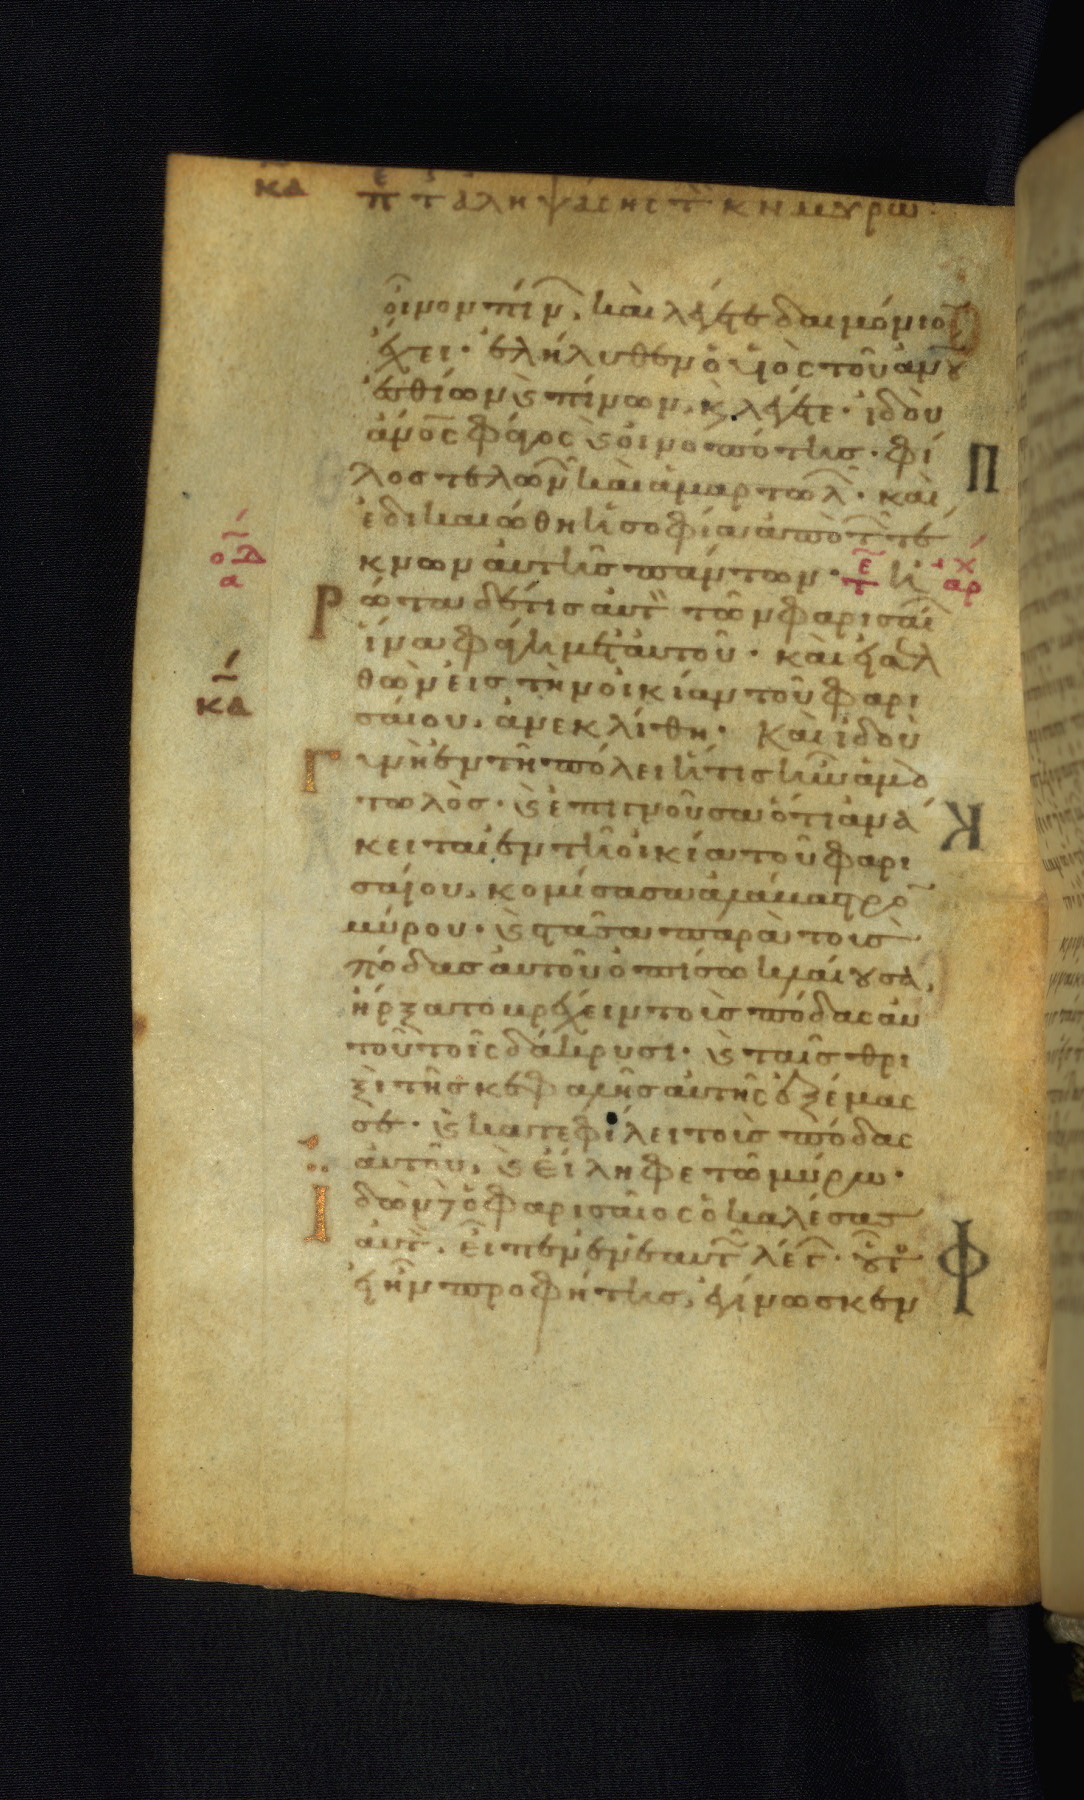 κα πε τ αλειψάσης τ κν μύρω
οἶνον πίν, καὶ λέγετε δαιμόνιον
ἔχει· ἐλήλυθεν ὁ υἱὸς τοῦ ἀνου
ἐσθίων καὶ πίνων, καὶ λέγετε· ἰδοὺ
ἄνος φάγος καὶ οἰνοπότης· φί
λος τελωνῶν καὶ ἁμαρτωλ· καὶ
ἐδικαιώθη ἡ σοφία ἀπὸ τ τέ
κνων αὐτῆς πάντων· τε
Ρώτα δέ τις αὐτ τῶν φαρισαί
ἵνα φάγη μετ αὐτοῦ· καὶ εἰσελ
θὼν εἰς τὴν οἰκίαν τοῦ φαρι
σαίου, ἀνεκλίθη· Καὶ ἰδοὺ
Γυνὴ ἐν τῆ πόλει ἥτις ἦν ἁμαρ
τωλὸς· καὶ ἐπιγνοῦσα ὅτι ἀνά
κειται ἐν τῆ οἰκία τοῦ φαρι
σαίου, κομίσασα ἀλάβαστρο
μύρου· καὶ στᾶσα παρὰ τοὺς
πόδας αὐτοῦ ὀπίσω κλαίουσα,
ἤρξατο βρέχειν τοὺς πόδας αὐ
τοῦ τοῖς δάκρυσι· καὶ ταῖς θρι
ξὶ τῆς κεφαλῆς αὐτῆς ἐξέμας
σε· καὶ κατεφίλει τοὺς πόδας
αὐτοῦ, καὶ ἤλειφε τῶ μύρω·
Ἰδὼν δὲ ὁ φαρισαῖος ὁ καλέσας
αὐτ, εἶπεν ἐν ἑαυτ λέγ· οὗτο
εἰ ἦν προφήτης, ἐγίνωσκεν